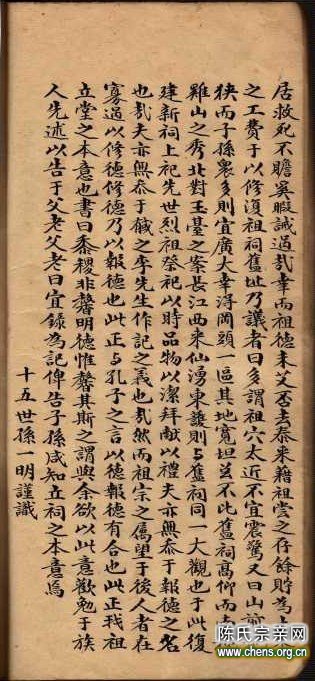 居救死不贍奚暇誠過哉幸而祖德未艾否去泰來藉祖嘗之存餘貯為
之工費于以修復祖祠舊址乃議者曰多謂祖穴太近不宜震驚又曰山
狹而子孫衆多則宜廣大幸淂岡頭一區其地寛坦並不比舊祠高仰而
雞山之秀北對玉臺之案長江西来仙湧東護則与舊祠同一大觀也于此復
建新祠上祀先世烈祖祭祀以時品物以潔拜献以禮夫亦無忝于報德之名
也哉夫亦無忝于餓之李先生作記之義也哉然而祖宗之属望于後人者在
寡過以修德修德乃以報德也此正与孔子之言以德報德有合也此正我祖
立堂之本意也書曰黍稷非馨明德惟馨其斯之謂與余欲以此意歡勉于族
人先述以告于父老父老曰宜錄為記俾告子孫咸知立祠之本意焉
十五世孫一明謹識
陈氏宗亲网
www.chens.org.cn